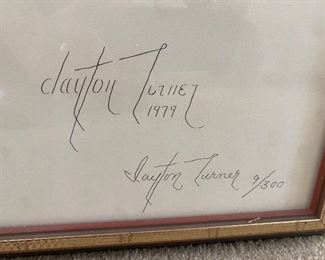 clayton Turner
1979
Clayton Turner 9/300